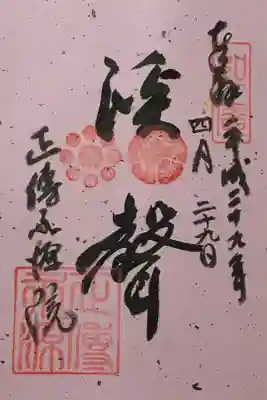 奉拝 平成二十九年
四月二十九日
渓聲
正傳永源院